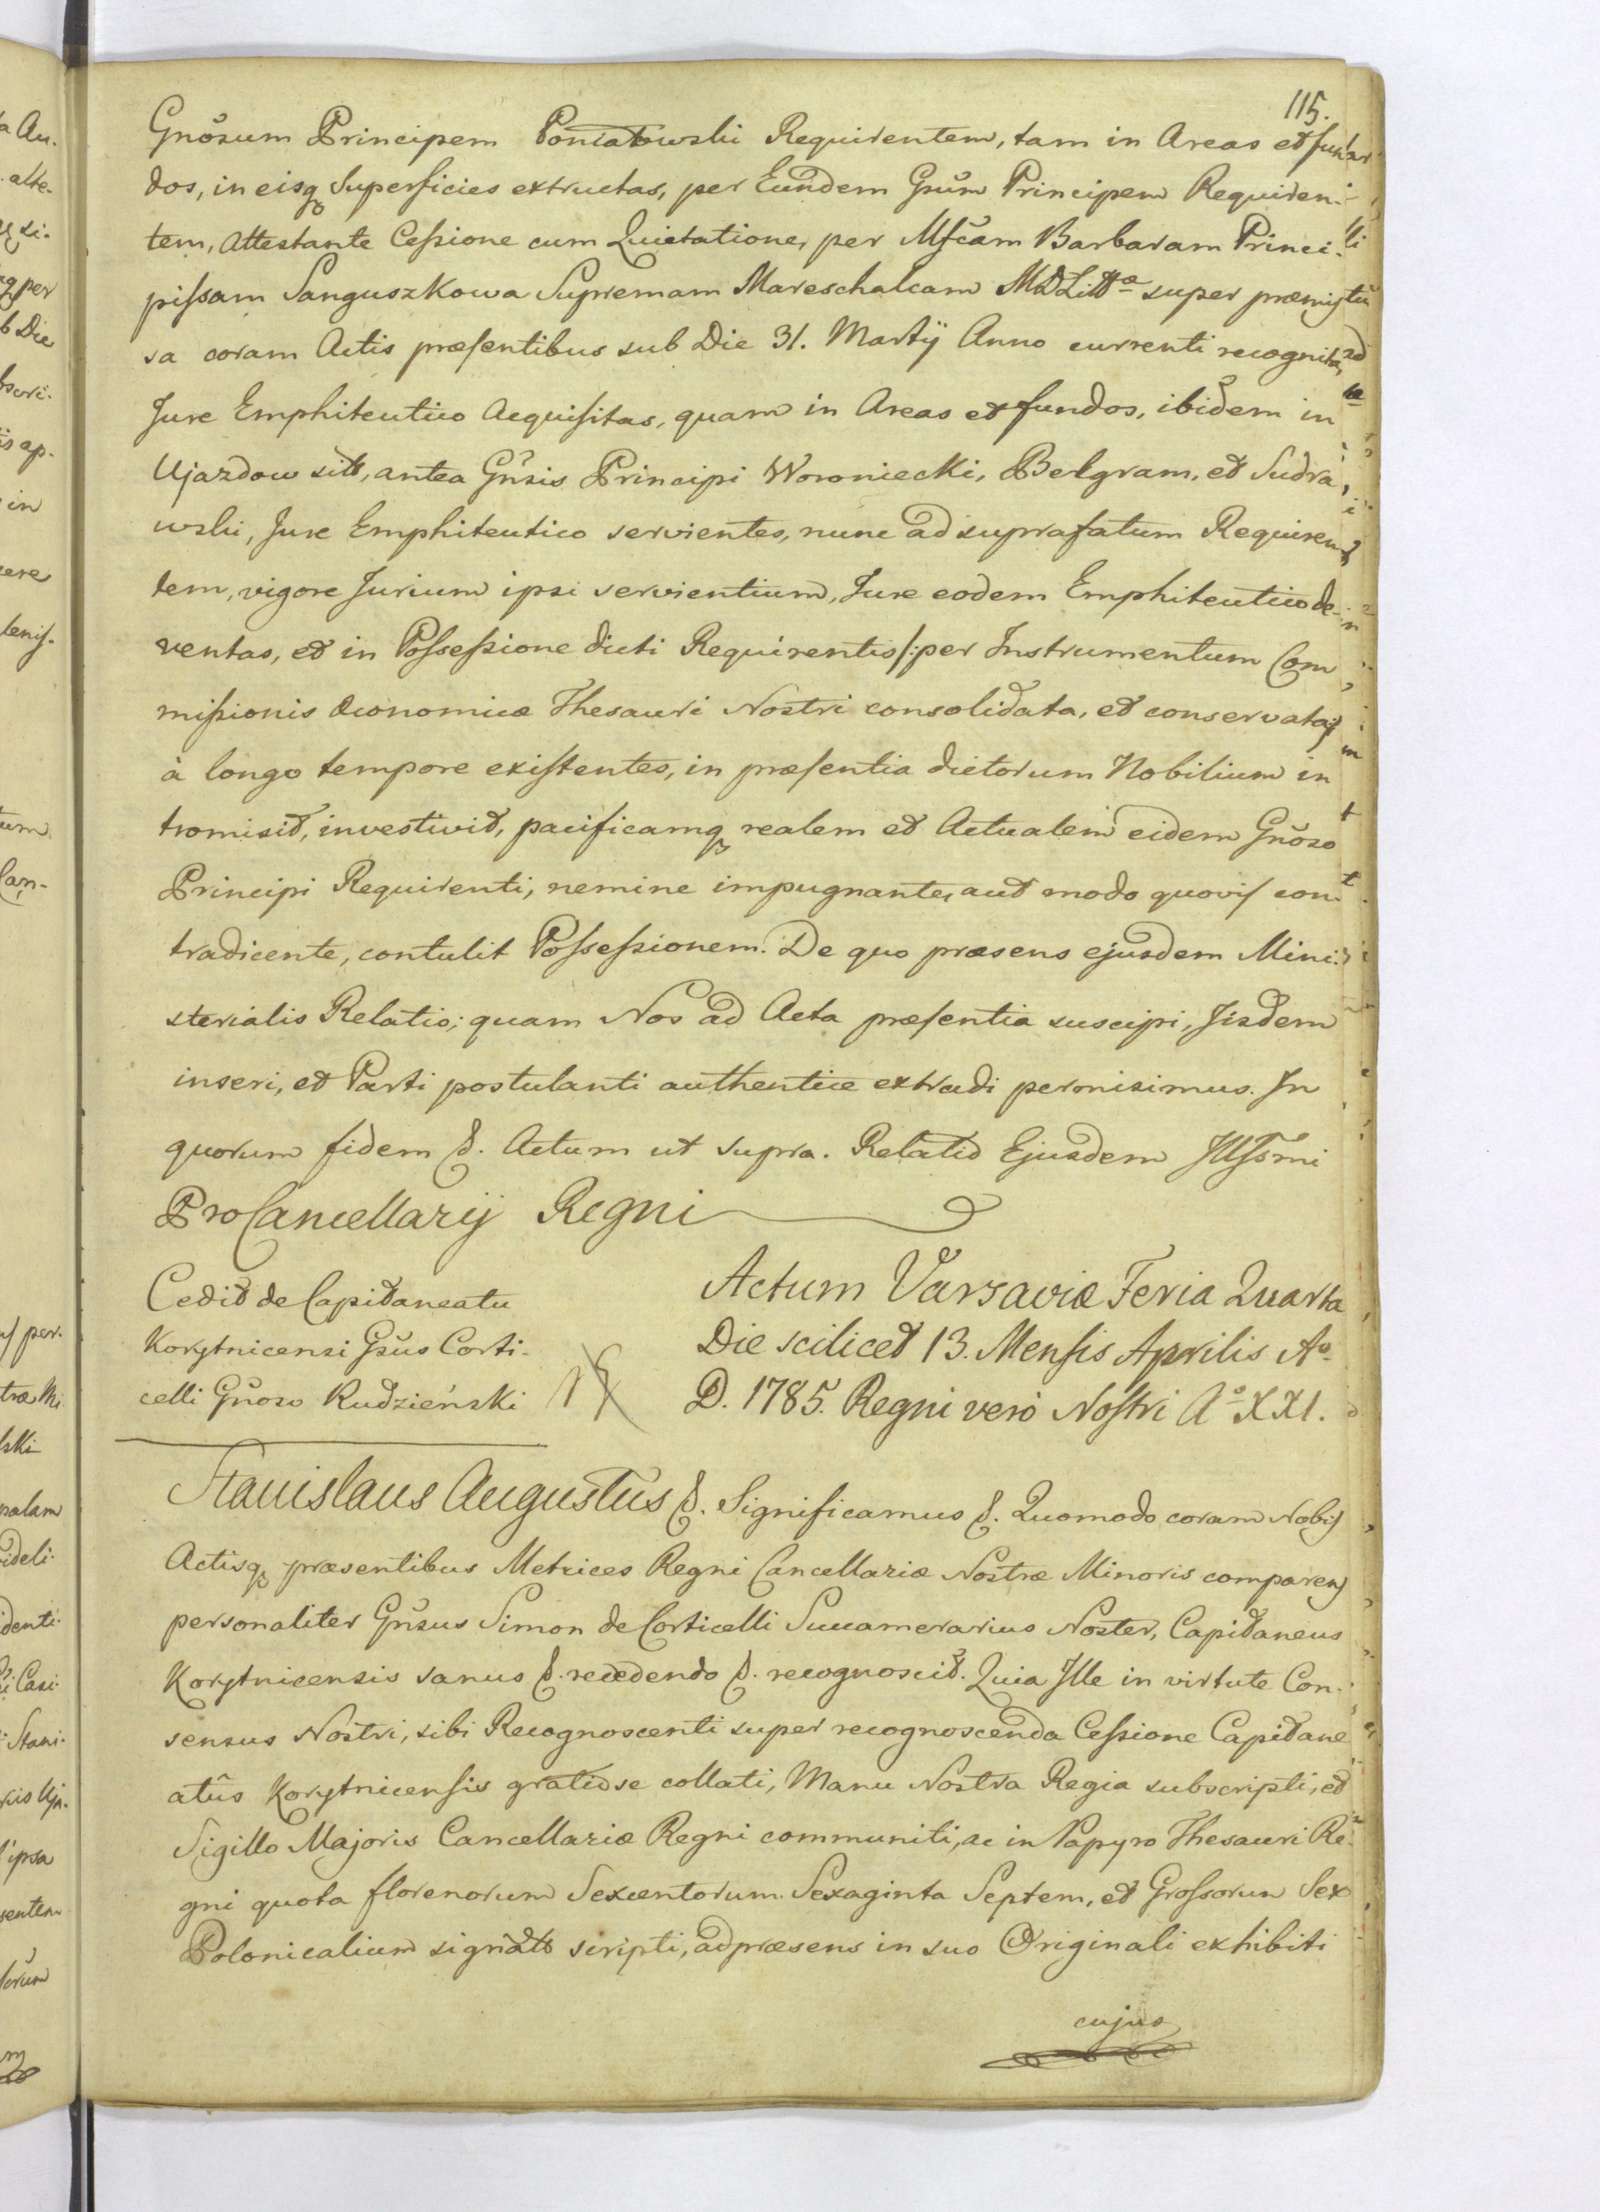 115.
Gnõsum Principem Poniatowski Requirentem, tam in Areas et fun
dos, in eisq Superficies extructas, per Eundem Gnũm Principem Requiren-
tem, Attestante Cessione cum Quietatione, per Mfcam Barbaram Princi-
pissam Sanguszkowa Supremam Mareschalcam MDLittæ super præmis
sa coram Actis præsentibus sub Die 31. Martij Anno currenti recognita,
Jure Emphiteutico Acquisitas, quam in Areas et fundos, ibidem in
Ujazdow sitt, antea Gnsis Principi Woroniecki, Belgram, et Sudra
wski, Jure Emphiteutico servientes, nunc ad suprafatum Requiren
tem, vigore Jurium ipsi servientium, Jure eodem Emphiteutico de-
ventas, et in Possessione dicti Requirentis /: per Instrumentum Com
missionis Œconomicæ Thesauri Nostri consolidata, et conservata :/
à longo tempore existentes, in præsentia dictorum Nobilium in
tromisit, investivit, pacificamq realem et Actualem eidem Gnõso
Principi Requirenti, nemine impugnante, aut modo quovis con-
tradicente, contulit Possessionem. De quo præsens ejusdem Mini-
sterialis Relatio; quam Nos ad Acta præsentia suscipi, Jisdem
inseri, et Parti postulanti authentice extradi permisimus. In
quorum fidem &. Actum ut supra. Relatio Ejusdem Jllssmi
ProCancellarij Regni
Cedit de Capitaneatu
Korytnicensi Gsus Corti-
celli Gnoso Rudzieński
Actum Varsaviæ Feria Quarta
Die scilicet 13. Mensis Aprilis Ao
D. 1785. Regni vero Nostri Ao XXI.
Stanislaus Augustus &. Significamus &. Quomodo coram Nobis
Actisq præsentibus Metrices Regni Cancellariæ Nostræ Minoris comparens
personaliter Gnsus Simon de Corticelli Succamerarius Noster, Capitaneus
Korytnicensis sanus &. recedendo &. recognoscit. Quia Jlle in virtute Con-
sensus Nostri, sibi Recognoscenti super recognoscenda Cessione Capitane
atûs Korytnicensis gratiose collati, Manu Nostra Regia subscripti, et
Sigillo Majoris Cancellariæ Regni communiti, ac in Papyro Thesauri Re-
gni quota florenorum Sexcentorum Sexaginta Septem, et Grossorum Sex
Polonicalium signatt scripti, ad præsens in suo Originali exhibiti
cujus